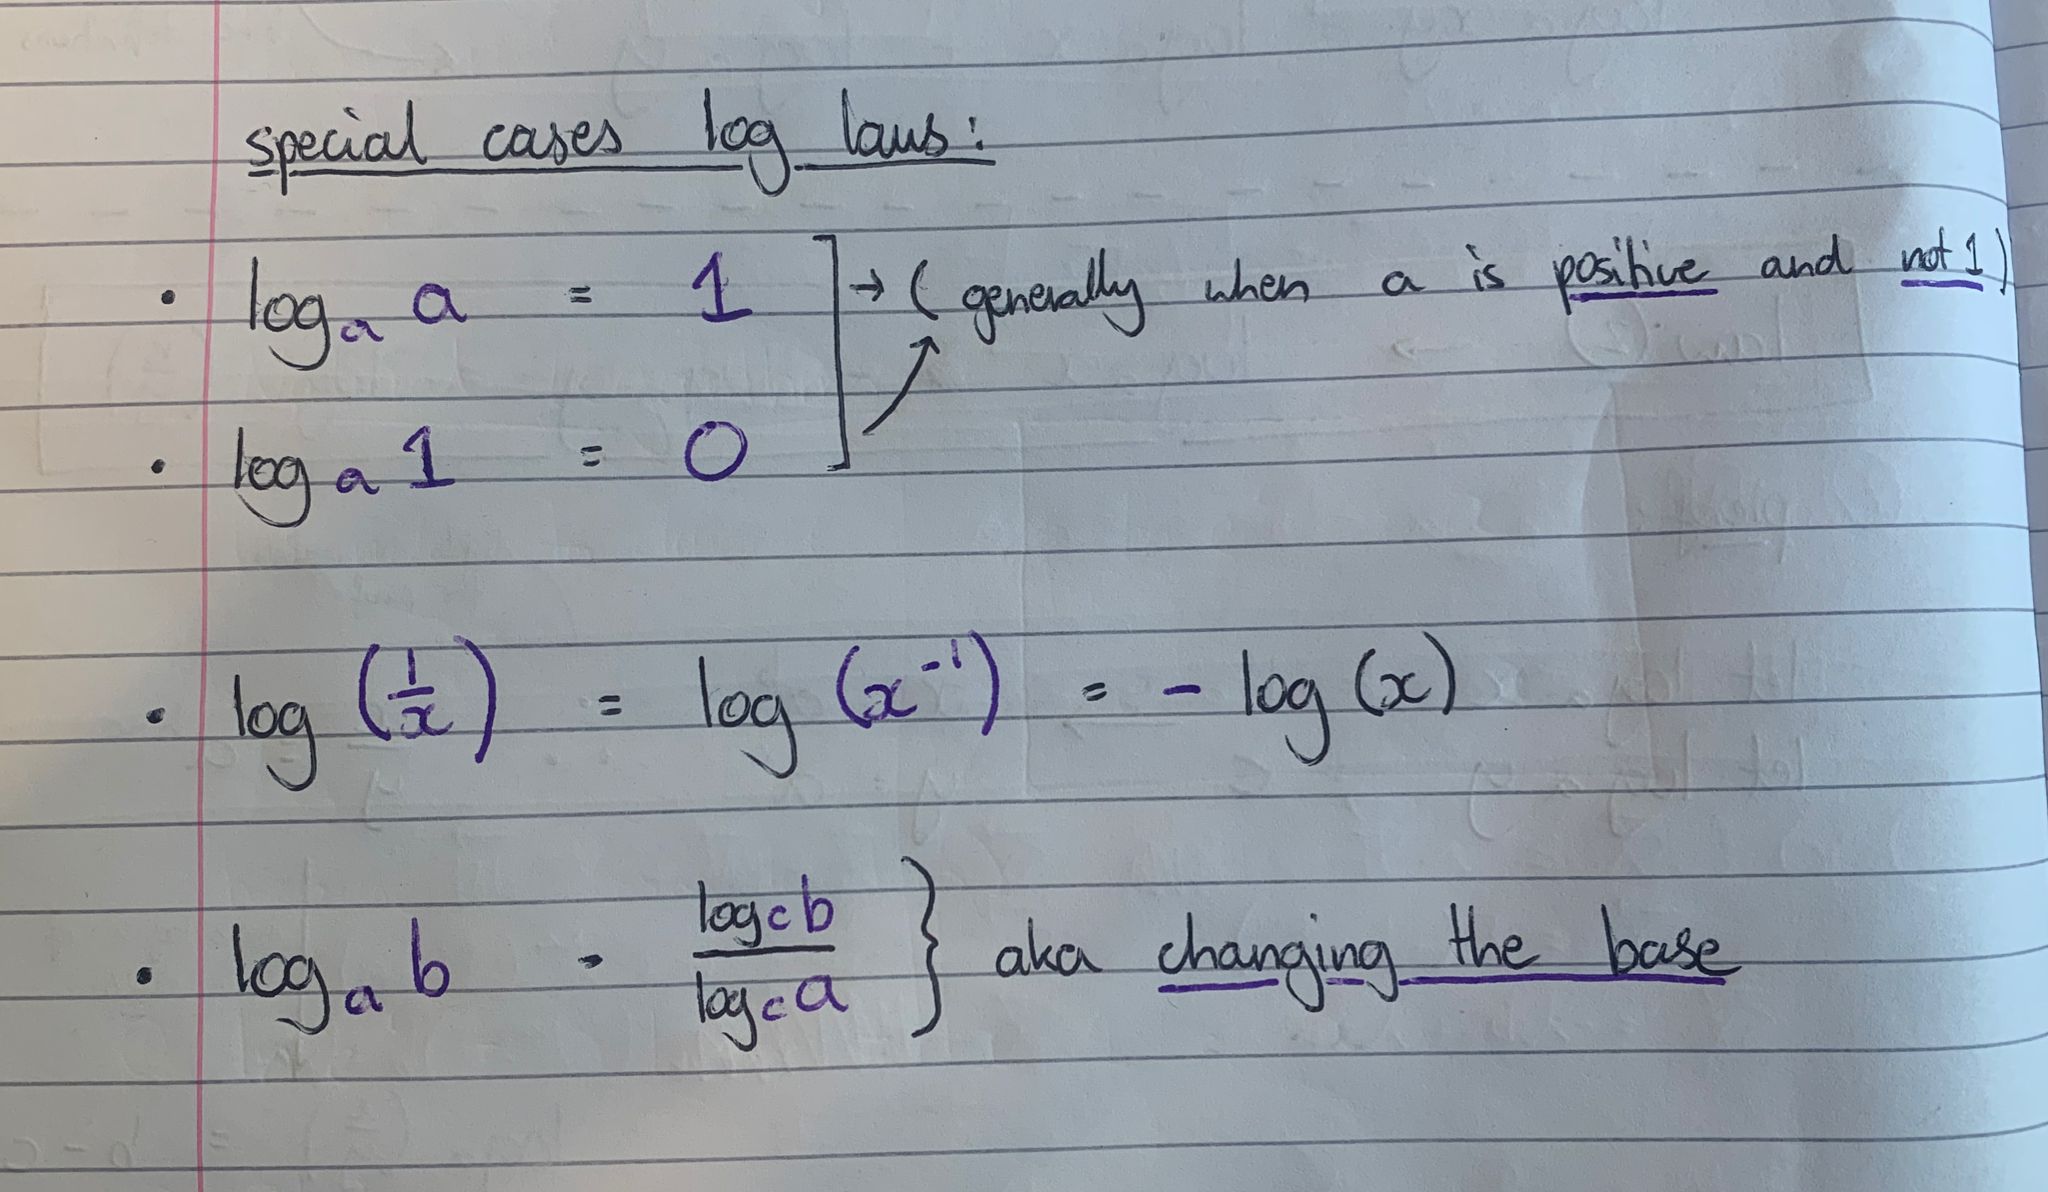 special cases log laws:
• logₐ a = 1 ] → (generally when a is positive and not 1)
• logₐ 1 = 0
• log (1/x) = log (x⁻¹) = - log (x)
• logₐ b = log_c b / log_c a } aka changing the base